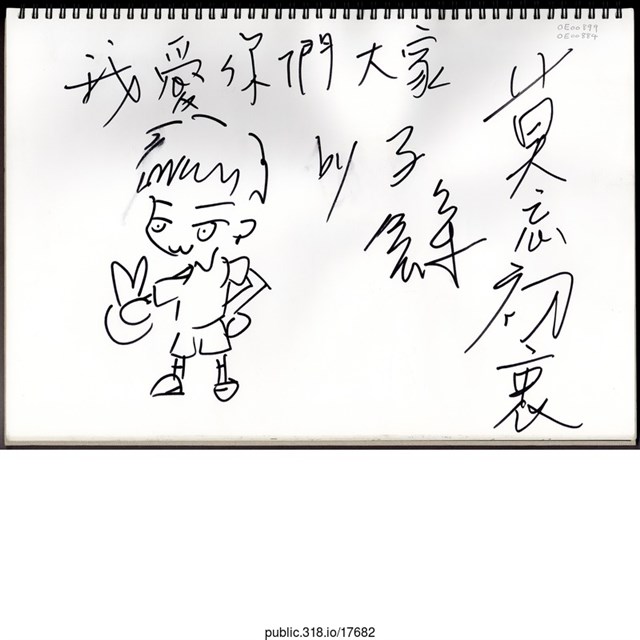 我愛你們大家
by 子餘
莫忘初衷
OE00884
public.318.io/17682